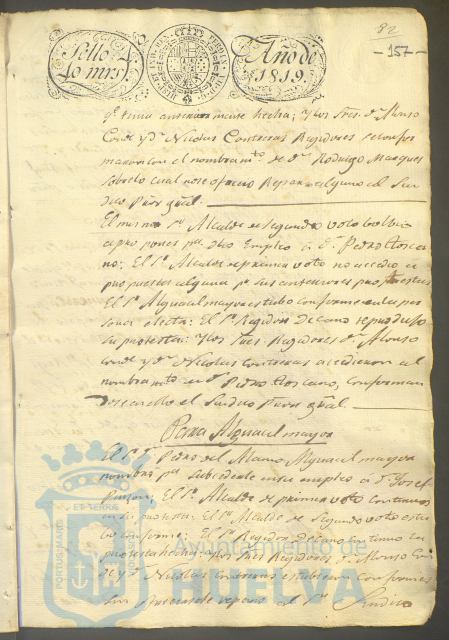 82
-157-
Sello 4º
40 mrs
HISPANIARUM
Año de
1819.
hecha; y los Sres. Dn. Alonso
Conde y Dn. Nicolas Contreras Regidores se confor
maron con el nombramto. de Dn. Rodrigo Marques
sobre lo cual no se ofrecio Reparo alguno al Sin
dico Pror. gral.
El mismo Sr. Alcalde de Segundo voto volvio
a proponer pa. dho Empleo a Dn. Pedro Tosca
no: El Sr. Alcalde de primer voto no accedio a
propuesta alguna pr. sus anteriores protestas
El Sr. Alguacil mayor estubo conforme en la per
sona electa: El Sr. Regidor Decano reprodujo
su protesta: y los Sres. Regidores Dn. Alonso
Conde y Dn. Nicolas Contreras accedieron al
nombramto. en Dn. Pedro Toscano, conforman
dose en ello el Sindico Pror. gral.
Para Alguacil mayor
El Sr. Dn. Pedro del Alamo Alguacil mayor
nombró pa. subcederle en su empleo a Dn. Josef
El Sr. Alcalde de primer voto continuó
en su protesta. El Sr. Alcalde de Segundo voto estu
bo conforme: El Sr. Regidor Decano continuó su
protesta hecha; y los Sres. Regidores Dn. Alonso Con
de y Dn. Nicolas Contreras estubieron conformes
sin ofrecersele reparo al Sr. Sindico
PORTUS MARIS
ET TERRÆ
Ayuntamiento de
HUELVA